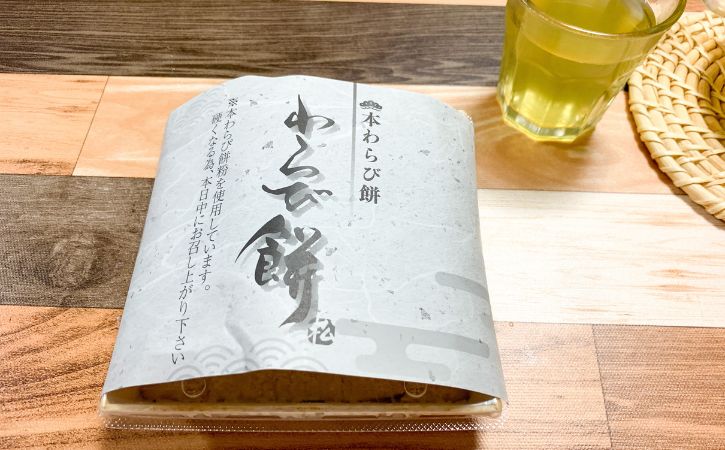 本わらび餅
わらび餅
※本わらび餅粉を使用しています。
硬くなる為、本日中にお召し上がり下さい